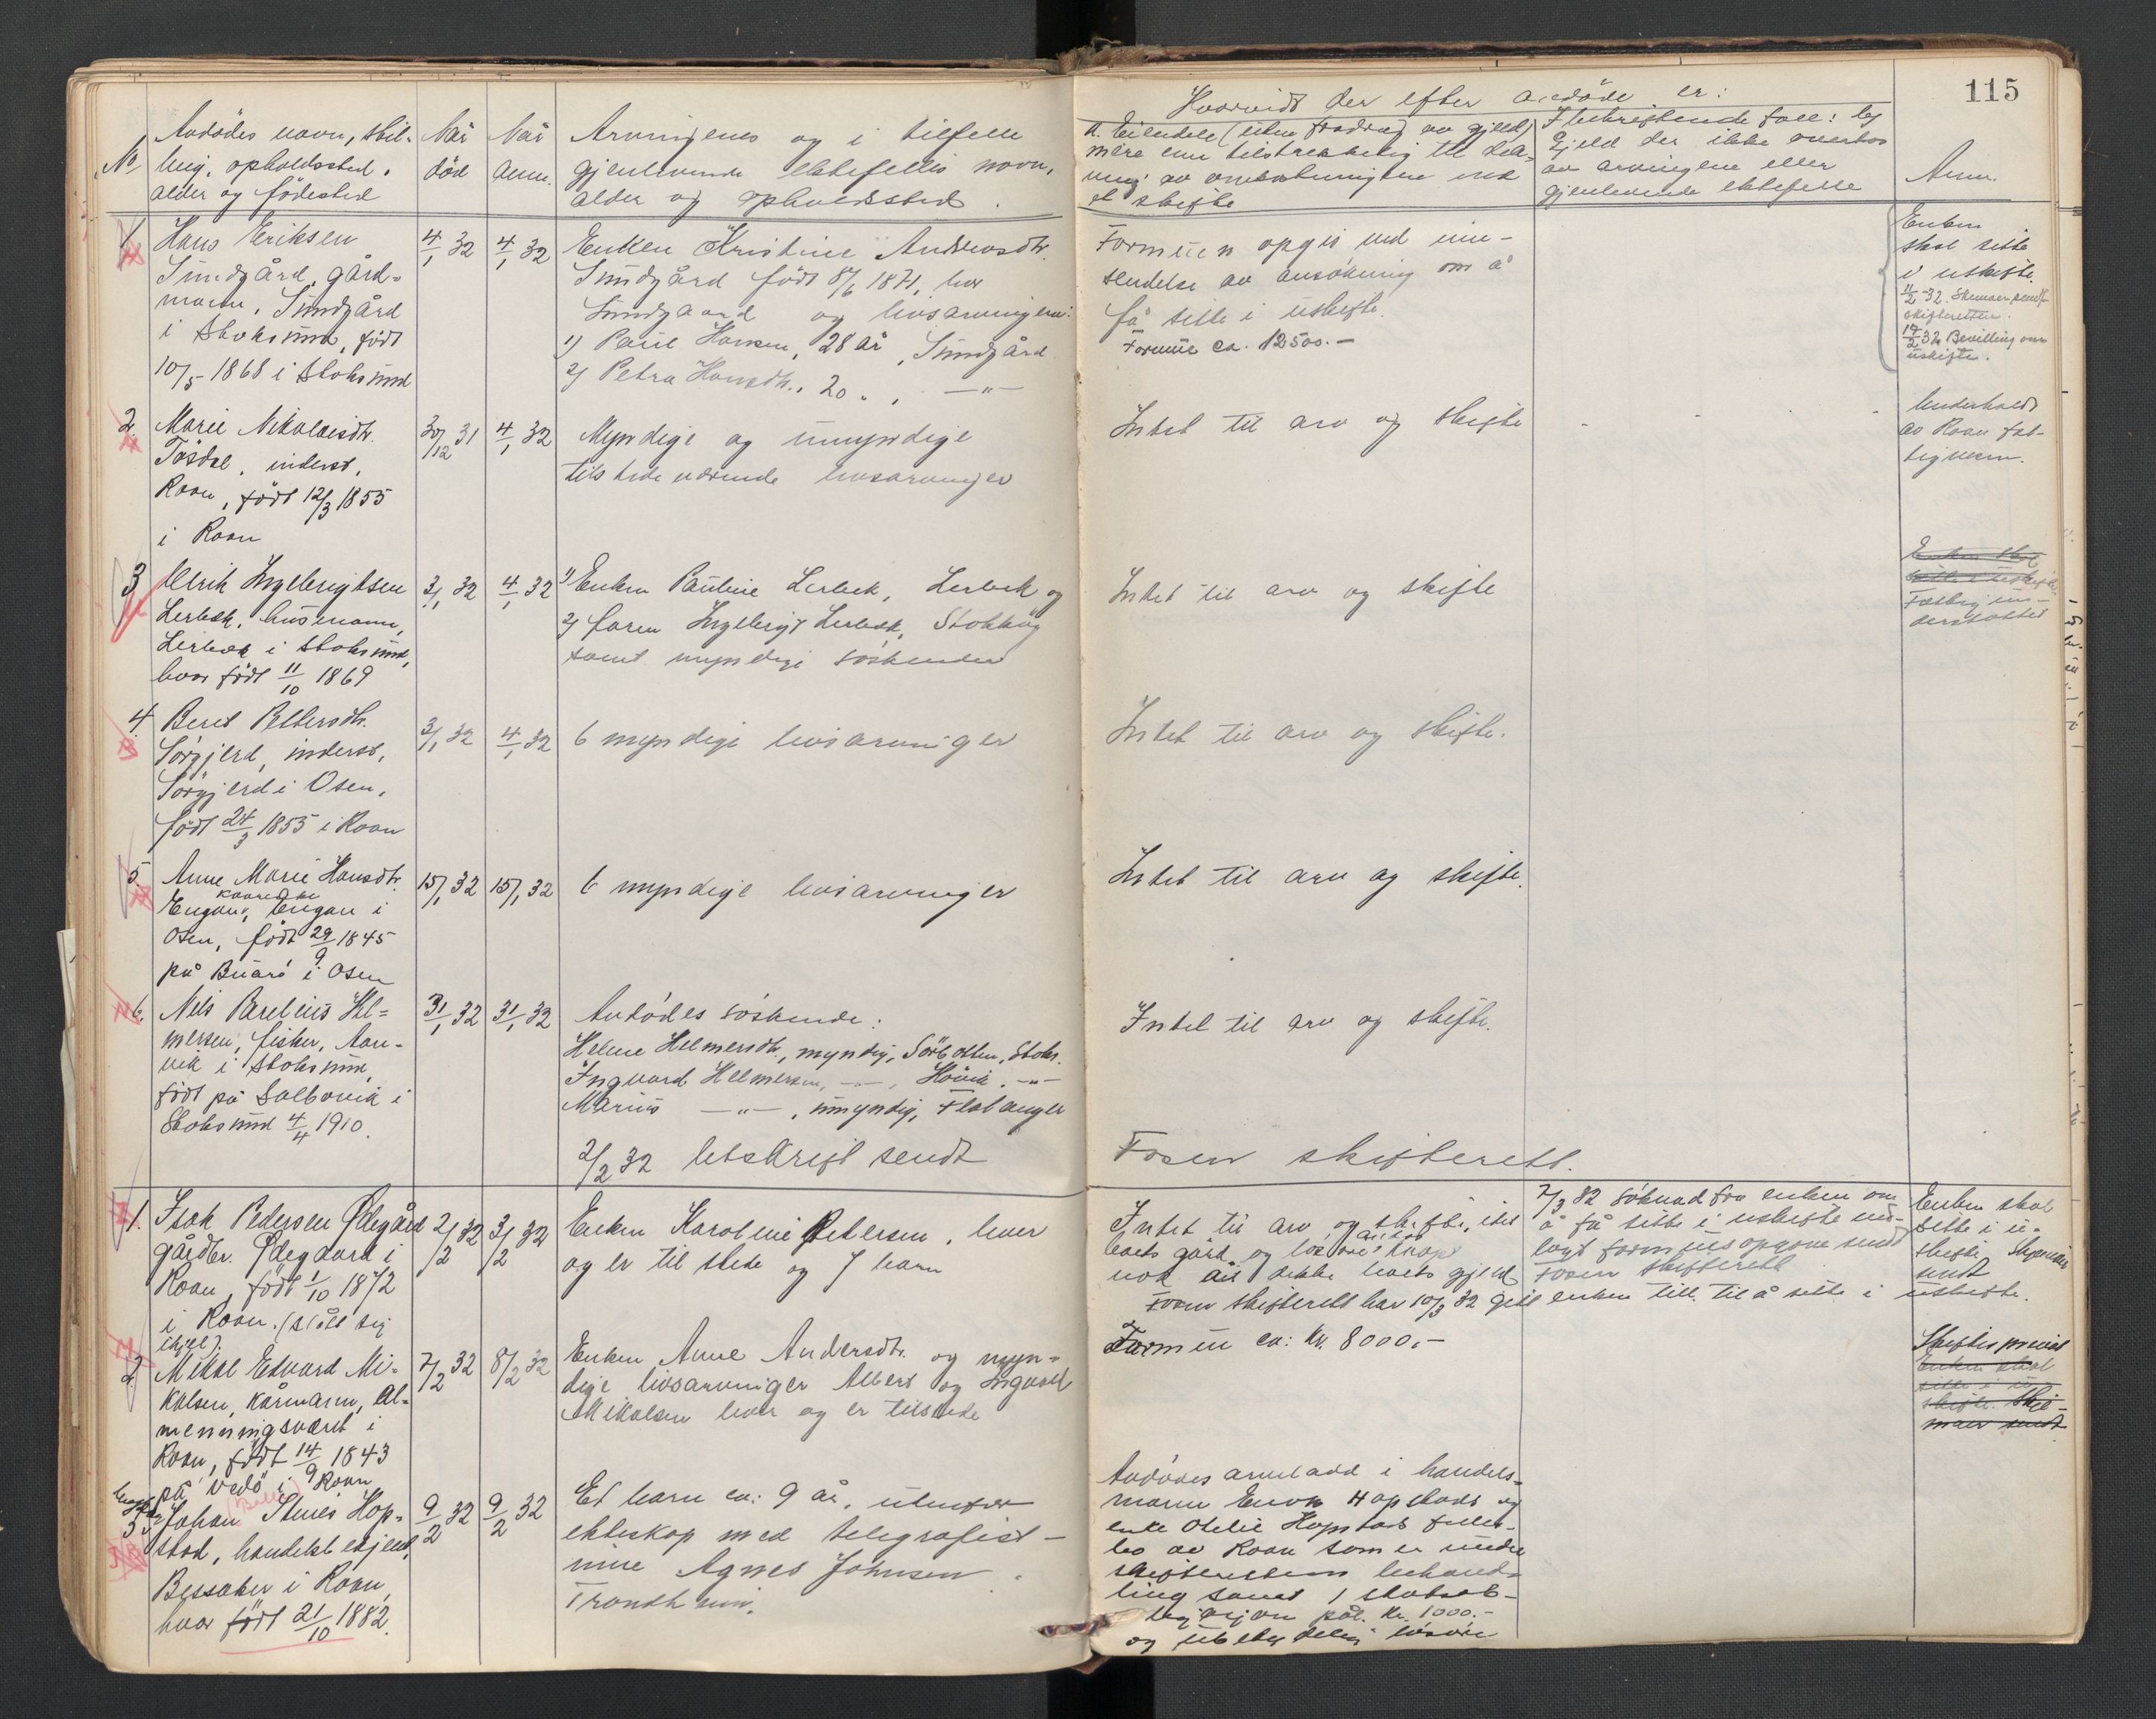 115
Hvorvidt der efter avdöde er:
No
Avdödes navn, stil-
ling, opholdssted,
alder og födested
Når
död
Når
anm.
Arvingenes og i tilfelle
gjenlevende ektefelles navn,
alder og opholdssted.
a. Eiendele (uten fradrag av gjeld)
mere enn tilstrekkelig til dek-
ning av omkostningene ved
et skifte
I bekreftende fall: b)
Gjeld der ikke overtas
av arvingene eller
gjenlevende ektefelle
Anm.
1.
Hans Eriksen
Sundgård, gård-
mann, Sundgård
i Stoksund, födt
10/5 1868 i Stoksund
4/1 32
4/1 32
Enken Kristine Andreasdtr.
Sundgård födt 8/6 1871, bor
Sundgaard og livsarvingene:
1) Paul Hansen, 28 år, Sundgård
2) Petra Hansdtr., 20 " , —"—
Formuen opgis ved inn-
sendelse av ansökning om å
få sitte i uskifte.
Formue ca. 12500.-
Enken
skal sitte
i uskifte.
11/2 -32. Skemaer sendt
skifteretten.
17/2 32 Bevilling om
uskifte.
2.
Marie Nikolaisdtr.
Tösdal, inderst,
Roan, födt 12/3 1855
i Roan
30/12 31
4/1 32
Myndige og umyndige
tilstedeværende livsarvinger
Intet til arv og skifte
-
-
Underholdt
av Roan fat-
tigvesen.
3
Ulrik Ingebrigtsen
Lerbek, husmann,
Lerbek i Stoksund,
hvor födt 11/10 1869
3/1 32
4/1 32
1) Enken Pauline Lerbek, Lerbek og
2) faren Ingebrigt Lerbek, Stokköy
samt myndige söskender
Intet til arv og skifte
Enken skal
sitte i uskifte
Fattigun-
derstöttet
4.
Beret Pettersdtr.
Sörgjerd, inderst,
Sörgjerd i Osen,
födt 24/3 1855 i Roan
3/1 32
4/1 32
6 myndige livsarvinger
Intet til arv og skifte.
5.
Anne Marie Hansdtr.
Engan, Engan i
Osen, födt 29/9 1845
på Buarö i Osen
15/1 32
15/1 32
6 myndige livsarvinger
Intet til arv og skifte.
6.
Nils Parelius Hel-
mersen, fisker, Aar-
vik i Stoksund,
födt på Solbovik i
Stoksund 4/4 1910.
31/1 32
31/1 32
Avdödes söskende:
Helene Helmersdtr., myndig, Sörbotten, Stoks.
Ingvard Helmersen, —"—, Hövik, —"—
Marius —"—, umyndig, Flatanger
Intet til arv og skifte.
2/2 32 Utskrift sendt
Fosen skifterett.
1.
Isak Pedersen Ødegård
gårdbr. Ødegaard i
Roan, födt 1/10 1872
i Roan. (slått sig
ihjel).
2/2 32
3/2 32
Enken Karoline Petersen, lever
og er til stede og 7 barn
Intet til arv og skifte, idet
boets gård og lösöre knapt
nok vil dekke boets gjeld
7/3 32 söknad fra enken om
å få sitte i uskifte ved-
lagt formuesopgave sendt
Fosen skifterett
Fosen skifterett har 10/3 32 gitt enken till. til å sitte i uskifte.
Enken skal
sitte i u-
skifte. Skjemaer
sendt
2.
Mikal Edvard Mi-
kalsen, kårmann, Al-
menningsværet i
Roan, födt 14/9 1843
på Vedö i Roan
7/2 32
8/2 32
Enken Anne Andersdtr. og myn-
dige livsarvinger Albert og Ingvald
Mikalsen lever og er tilstede
Formue ca: kr. 8000.-
Skiftes privat
Enken skal
sitte i u-
skifte. Skje-
maer sendt
3.
Johan Steneis Hop-
stad, handelsbetjent,
Bessaker i Roan,
hvor födt 21/10 1882.
9/2 32
9/2 32
Et barn ca: 9 år, utenfor
ekteskap med telegrafist-
inne Agnes Johnsen,
Trondheim.
Avdödes arvelodd i handels-
mann Enok Hopstads og
enke Otelie Hopstads felles-
bo av Roan som er under
skifterettens behand-
ling samt 1 statsob-
ligasjon pål. kr. 1000.-
og ubetydelig lösöre